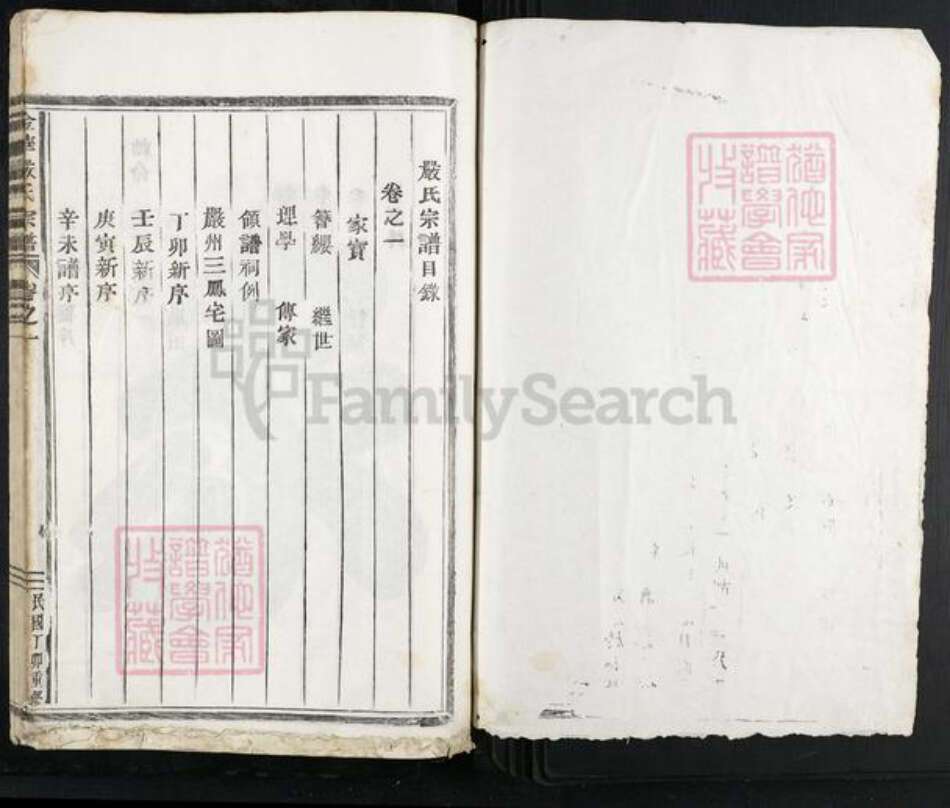 嚴氏宗譜目錄
卷之一
家寶
簪纓 繼世
理學 傳家
領譜祠例
嚴州三鳳宅圖
丁卯新序
壬辰新序
庚寅新序
辛未譜序
金華嚴氏宗譜 卷之一
民國丁卯重修
猶他家譜學會收藏
猶他家譜學會收藏
FamilySearch